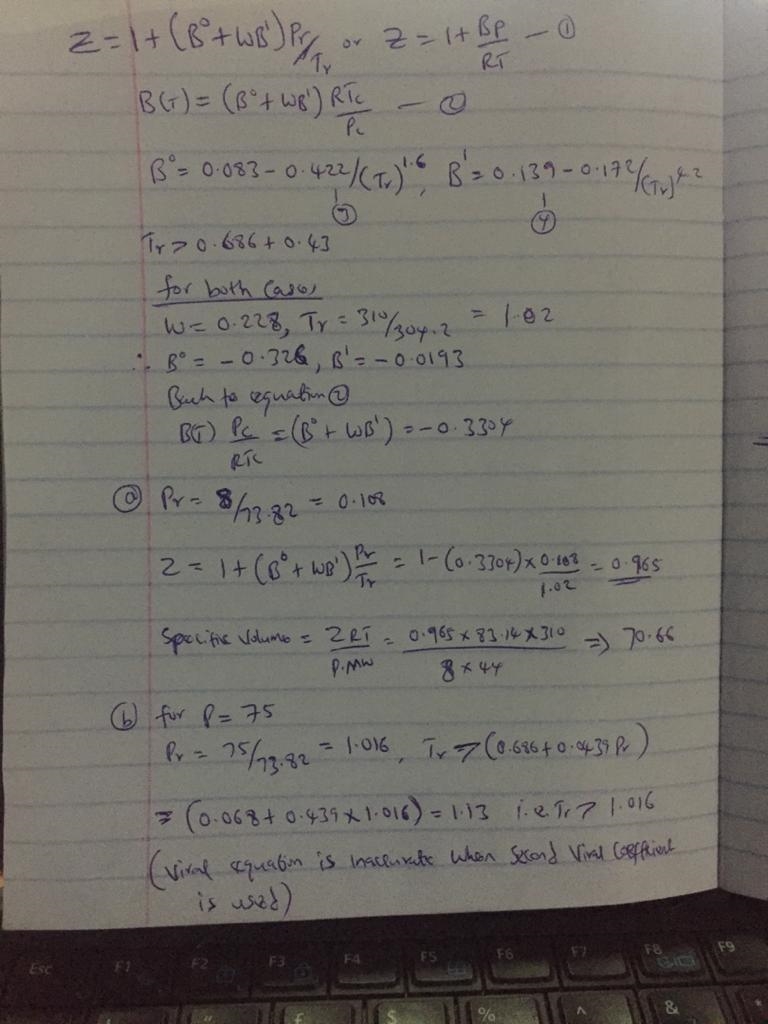 Z = 1 + (B⁰ + WB¹) Pr/Tr or Z = 1 + BP/RT — ①
B(T) = (B⁰ + WB¹) RTc/Pc — ②
B⁰ = 0.083 - 0.422/(Tr)^1.6, B¹ = 0.139 - 0.172/(Tr)^4.2
③ ④
Tr > 0.686 + 0.43
for both Cases
W = 0.228, Tr = 310/304.2 = 1.02
∴ B⁰ = -0.326, B¹ = -0.0193
Back to equation ②
B(T) Pc/RTc = (B⁰ + WB¹) = -0.3304
ⓐ Pr = 8/73.82 = 0.108
Z = 1 + (B⁰ + WB¹) Pr/Tr = 1 - (0.3304) x 0.108/1.02 = 0.965
Specific Volume = ZRT/P.MW = 0.965 x 83.14 x 310/8 x 44 ⇒ 70.66
ⓑ for P = 75
Pr = 75/73.82 = 1.016, Tr > (0.686 + 0.0439 Pr)
= (0.068 + 0.439 x 1.016) = 1.13 i.e Tr > 1.016
(Viral equation is inaccurate when Second Viral Coefficient
is used)
Esc F1 F2 F3 F4 F5 F6 F7 F8 F9
" £ $ % ^ & *